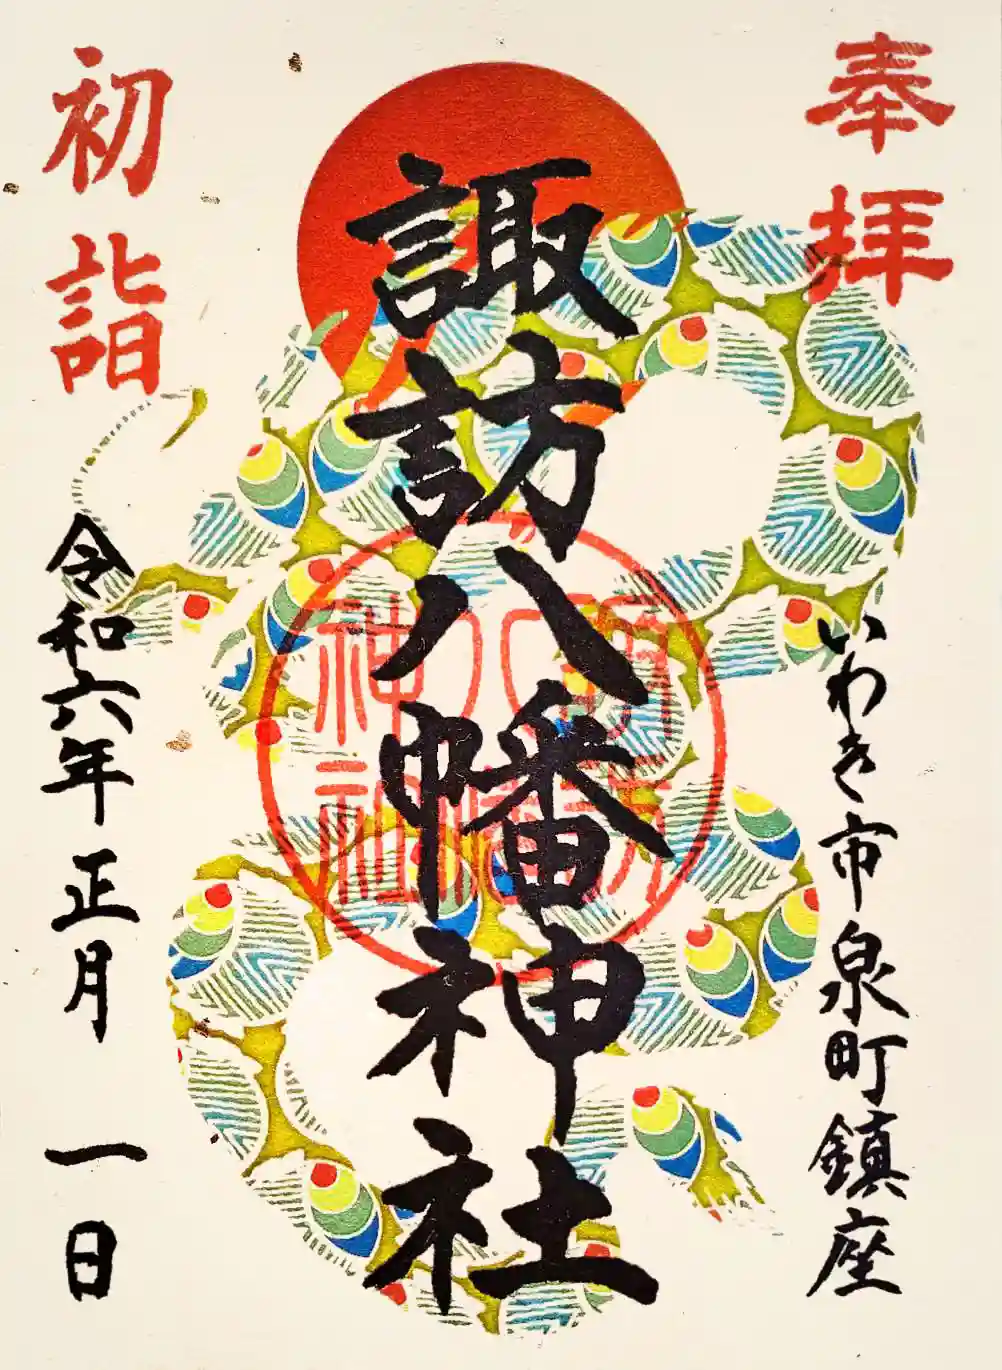 奉拝
いわき市泉町鎮座
諏訪八幡神社
諏訪
八幡
神社
初詣
令和六年正月一日